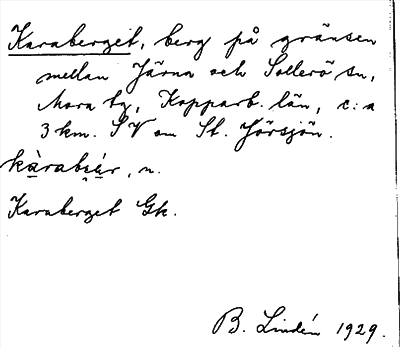 Karaberget, berg på gränsen
mellan Järna och Sollerö sn,
Mora tg, Kopparb. län, c:a
3 km. SV om St. Hörsjön.
kàrabɛ̣ár, n.
Karaberget Gk.
B. Lindén 1929.